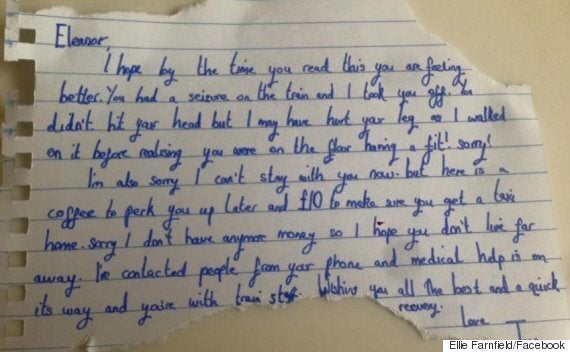 Eleanor,
I hope by the time you read this you are feeling
better. You had a seizure on the train and I took you off. You
didn't hit your head but I may have hurt your leg as I walked
on it before realising you were on the floor having a fit! sorry!
I'm also sorry I can't stay with you now. but here is a
coffee to perk you up later and £10 to make sure you get a taxi
home. sorry I don't have anymore money so I hope you don't live far
away. I've contacted people from your phone and medical help is on
its way and you're with train staff. Wishing you all the best and a quick
recovery.
Love T
Ellie Farnfield/Facebook